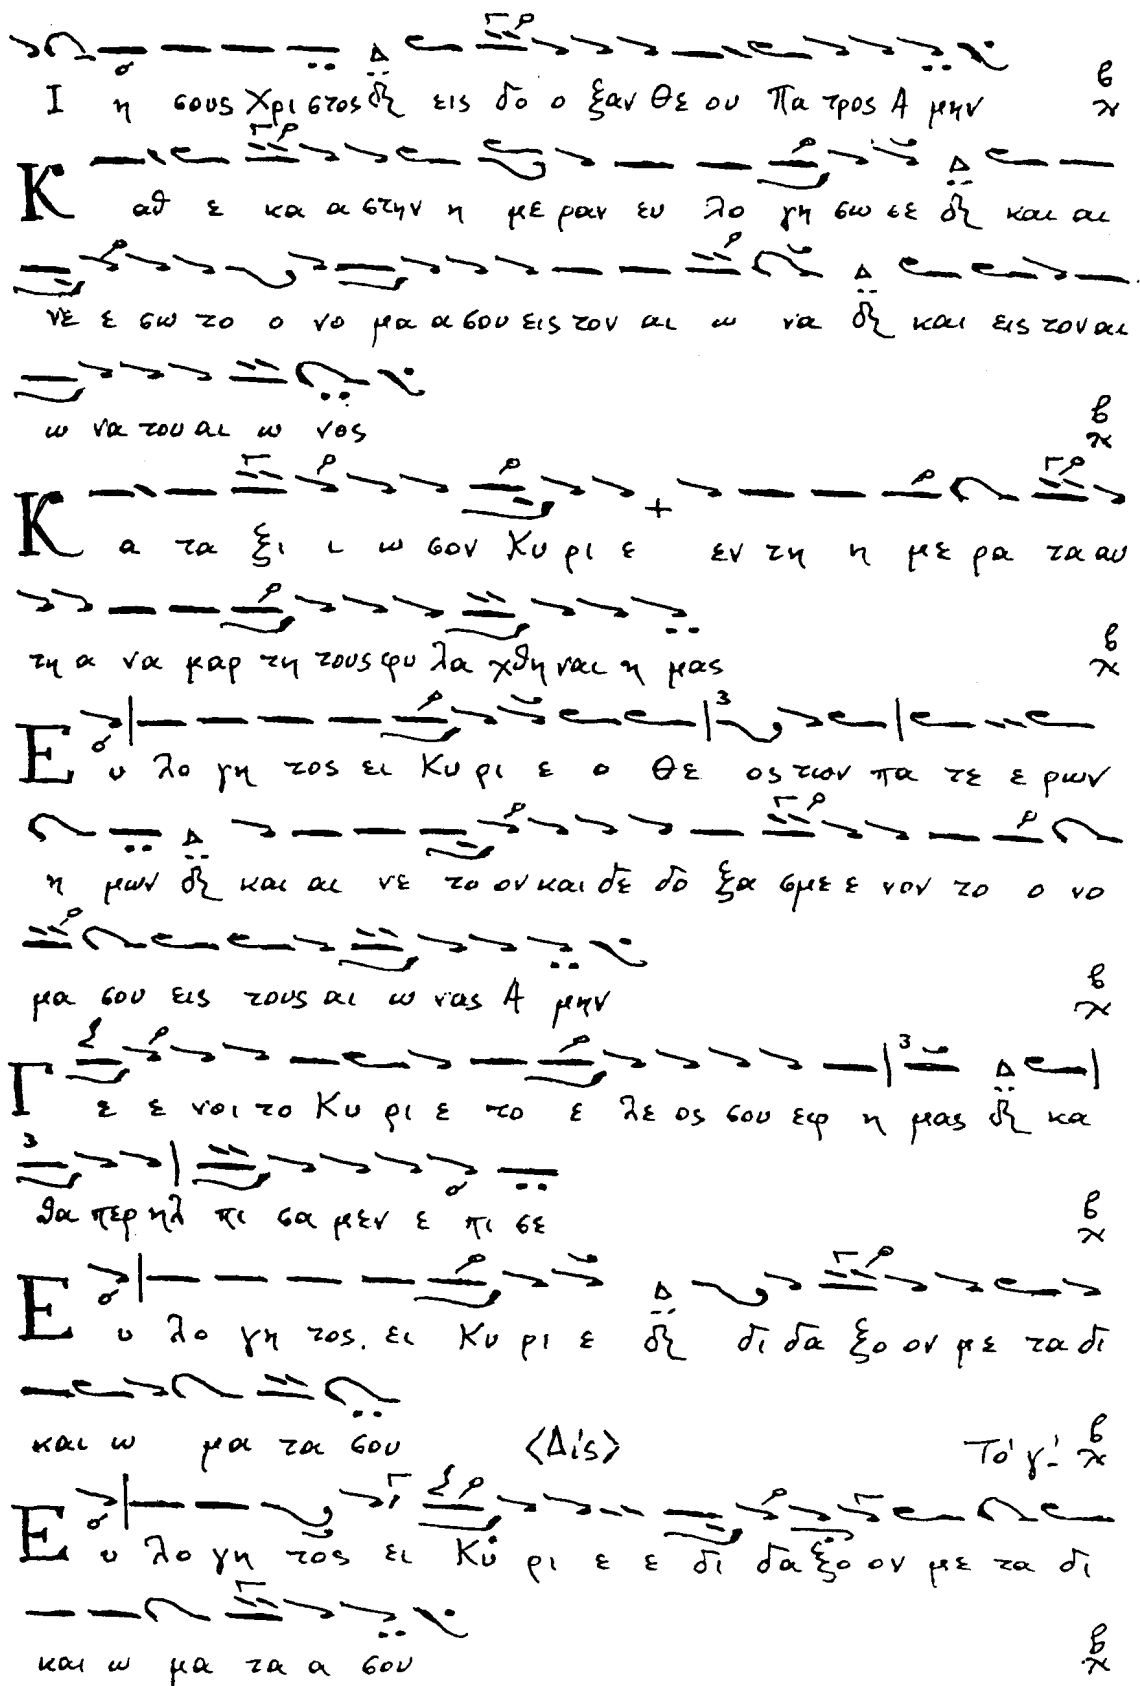 Ι η σους Χρι στος δι εις δο ο ξαν θε ου Πα τρος Α μην
Κ αθ ε κα α στην η με ραν ευ λο γη σω σε δι και αι
νε ε σω το ο νο μα α σου εις τον αι ω να δι και εις τον αι
ω να του αι ω νος
Κ α τα ξι ι ω σον Κυ ρι ε εν τη η με ρα τα αυ
τη α να μαρ τη τους φυ λα χθη ναι η μας
Ε υ λο γη τος ει Κυ ρι ε ο Θε ος των πα τε ε ρων
η μων δι και αι νε το ον και δε δο ξα σμε ε νον το ο νο
μα σου εις τους αι ω νας Α μην
Γ ε ε νοι το Κυ ρι ε το ε λε ος σου εφ η μας δι κα
θα περ ηλ πι σα μεν ε πι σε
Ε υ λο γη τος. ει Κυ ρι ε δι δι δα ξο ον με τα δι
και ω μα τα σου <Δίς> Το γ΄
Ε υ λο γη τος ει Κυ ρι ε ε δι δα ξο ον με τα δι
και ω μα τα α σου